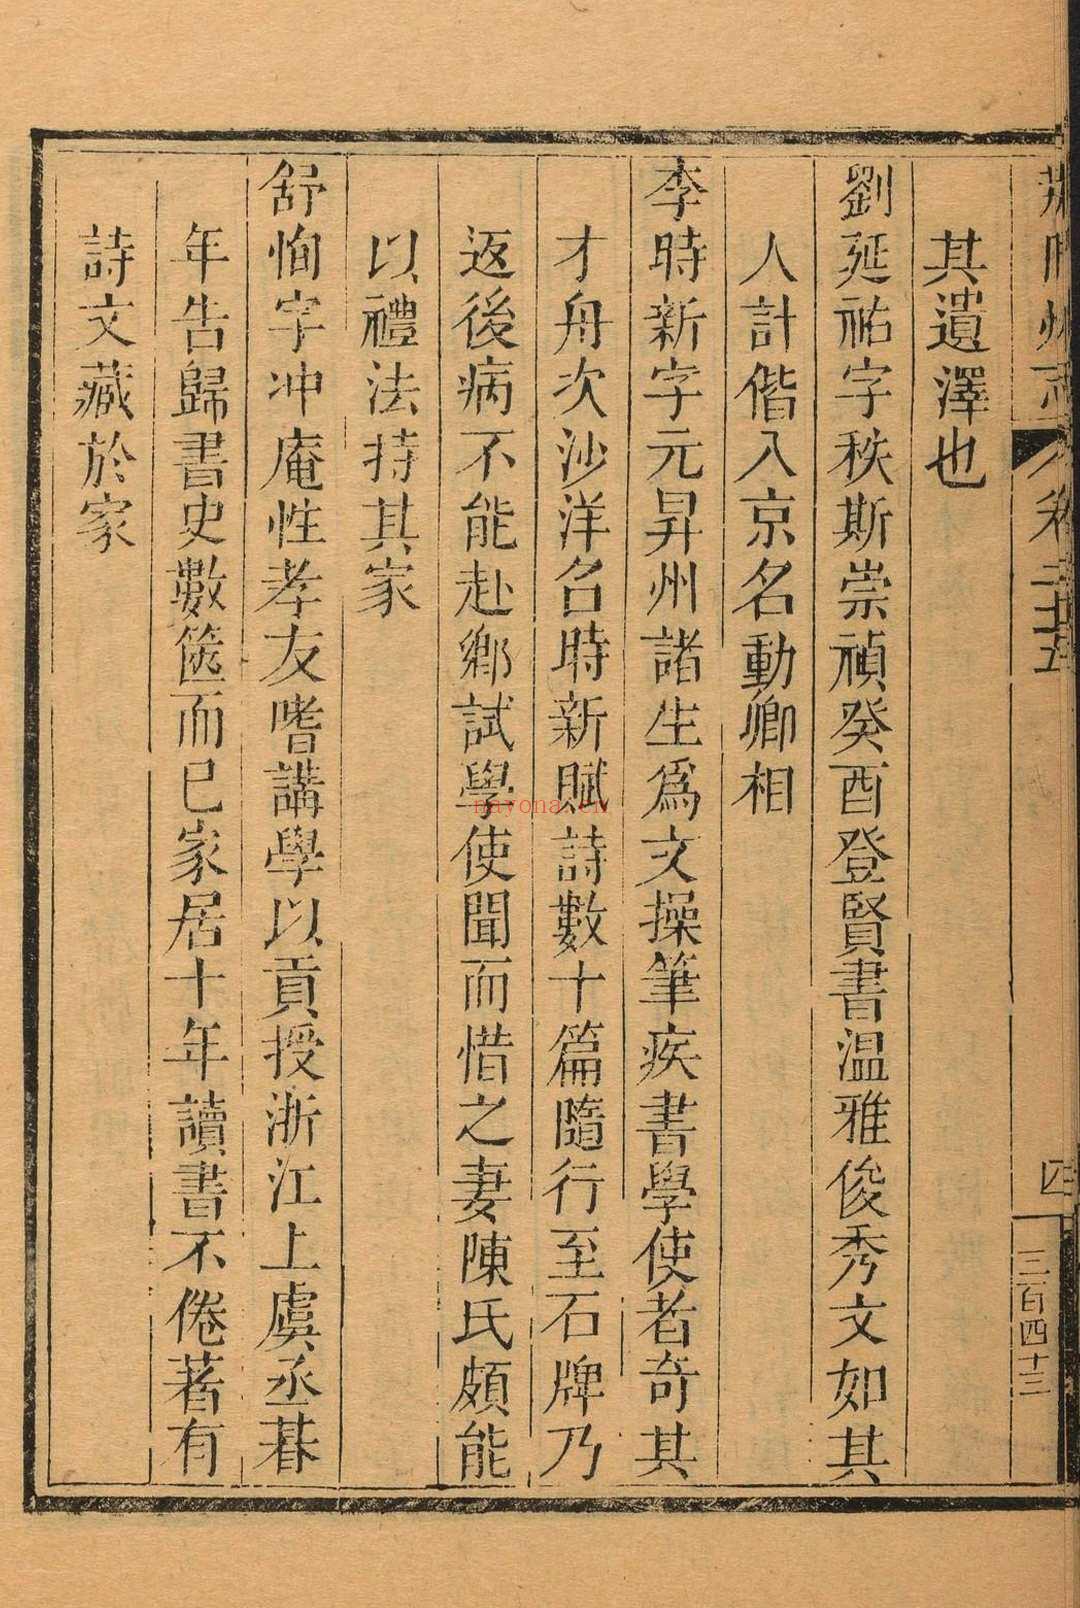 荊門州志 卷二十五 四 三百四十三
其遺澤也
劉延祐字秩斯崇禎癸酉登賢書温雅俊秀文如其
人計偕入京名動卿相
李時新字元昇州諸生爲文操筆疾書學使者奇其
才舟次沙洋召時新賦詩數十篇隨行至石牌乃
返後病不能赴鄉試學使聞而惜之妻陳氏頗能
以禮法持其家
舒恂字冲庵性孝友嗜講學以貢授浙江上虞丞朞
年告歸書史數篋而已家居十年讀書不倦著有
詩文藏於家
nayona.cn